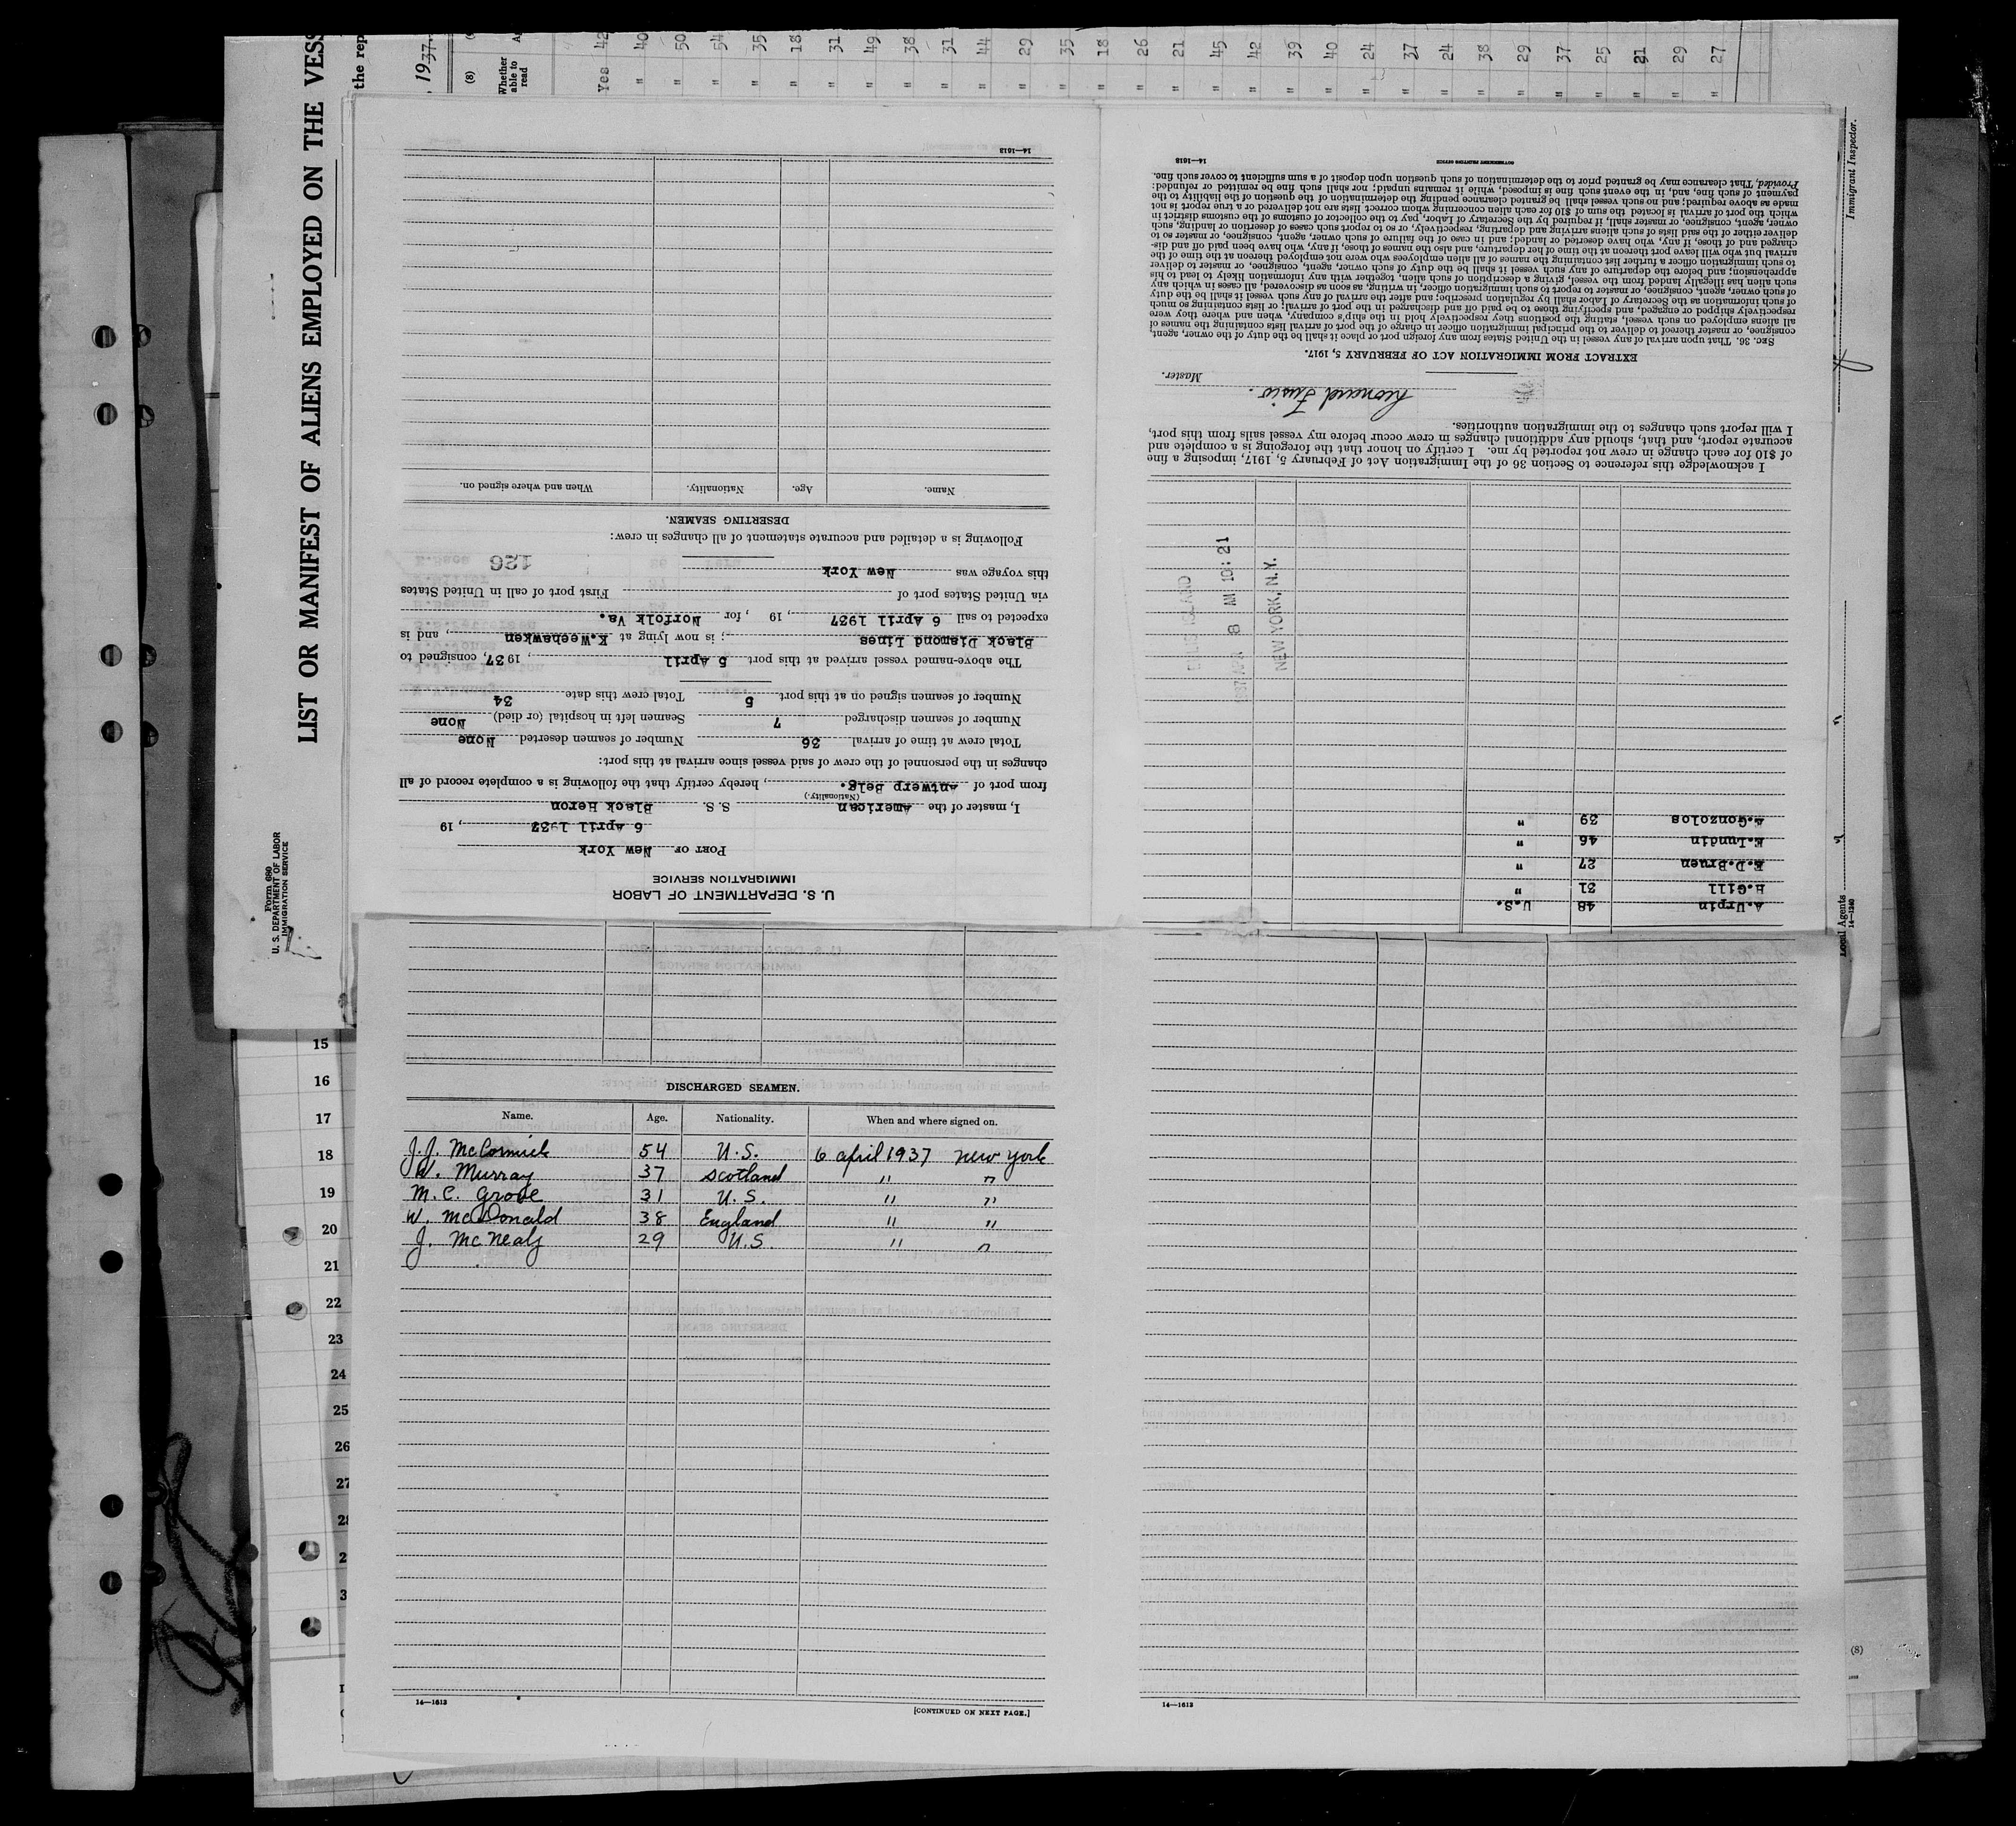 LIST OR MANIFEST OF ALIENS EMPLOYED ON THE VESS
the rep
, 1937.
(8)
Whether able to read
Yes 42
" 40
" 50
" 54
" 35
" 18
" 31
" 49
" 38
" 31
" 44
" 29
" 35
" 18
" 26
" 21
" 45
" 42
" 39
" 40
" 24
" 37
" 24
" 38
" 29
" 37
" 25
" 21
" 29
" 27
Form 680
U. S. DEPARTMENT OF LABOR
IMMIGRATION SERVICE
Immigrant Inspector.
Local Agents
14—1240
U. S. DEPARTMENT OF LABOR
IMMIGRATION SERVICE
PORT OF New York
6 April 1937, 19
I, master of the American S. S. Black Heron
(Nationality.)
from port of Antwerp Belg., hereby certify that the following is a complete record of all
changes in the personnel of the crew of said vessel since arrival at this port:
Total crew at time of arrival 36 Number of seamen deserted None
Number of seamen discharged 7 Seamen left in hospital (or died) None
Number of seamen signed on at this port 5 Total crew this date 34
The above-named vessel arrived at this port 5 April, 1937, consigned to
Black Diamond Lines; is now lying at K.Weehawken, and is
expected to sail 6 April 1937, 19 , for Norfolk Va.
via United States port of First port of call in United States
this voyage was New York
126
Following is a detailed and accurate statement of all changes in crew:
DESERTING SEAMEN.
Name. Age. Nationality. When and where signed on.
14—1613
A.Urpin 48 U.S.
H.Gill 31 "
E.D.Bruen 27 "
E.Lundin 46 "
A.Gonzolos 39 "
ELLIS ISLAND
1937 APR 8 AM 10: 21
NEW YORK, N.Y.
I acknowledge this reference to Section 36 of the Immigration Act of February 5, 1917, imposing a fine
of $10 for each change in crew not reported by me. I certify on honor that the foregoing is a complete and
accurate report, and that, should any additional changes in crew occur before my vessel sails from this port,
I will report such changes to the immigration authorities.
Master.
EXTRACT FROM IMMIGRATION ACT OF FEBRUARY 5, 1917.
SEC. 36. That upon arrival of any vessel in the United States from any foreign port or place it shall be the duty of the owner, agent,
consignee, or master thereof to deliver to the principal immigration officer in charge of the port of arrival lists containing the names of
all aliens employed on such vessel, stating the positions they respectively hold in the ship's company, when and where they were
respectively shipped or engaged, and specifying those to be paid off and discharged in the port of arrival; or lists containing so much
of such information as the Secretary of Labor shall by regulation prescribe; and after the arrival of any such vessel it shall be the duty
of such owner, agent, consignee, or master to report to such immigration officer, in writing, as soon as discovered, all cases in which any
such alien has illegally landed from the vessel, giving a description of such alien, together with any information likely to lead to his
apprehension; and before the departure of any such vessel it shall be the duty of such owner, agent, consignee, or master to deliver
to such immigration officer a further list containing the names of all alien employees who were not employed thereon at the time of the
arrival but who will leave port thereon at the time of her departure, and also the names of those, if any, who have been paid off and dis-
charged and of those, if any, who have deserted or landed; and in case of the failure of such owner, agent, consignee, or master so to
deliver either of the said lists of such aliens arriving and departing, respectively, or so to report such cases of desertion or landing, such
owner, agent, consignee, or master shall, if required by the Secretary of Labor, pay to the collector of customs of the customs district in
which the port of arrival is located the sum of $10 for each alien concerning whom correct lists are not delivered or a true report is not
made as above required; and no such vessel shall be granted clearance pending the determination of the question of the liability to the
payment of such fine, and, in the event such fine is imposed, while it remains unpaid; nor shall such fine be remitted or refunded:
Provided, That clearance may be granted prior to the determination of such question upon deposit of a sum sufficient to cover such fine.
GOVERNMENT PRINTING OFFICE 14—1613
DISCHARGED SEAMEN.
Name. Age. Nationality. When and where signed on.
J. J. McCormick 54 U.S. 6 april 1937 new york
W. Murray 37 Scotland " "
M. C. Grove 31 U.S. " "
W. McDonald 38 England " "
J. McNealy 29 U.S. " "
14—1613
[CONTINUED ON NEXT PAGE.]
14—1613
15
16
17
18
19
20
21
22
23
24
25
26
27
28
(8)